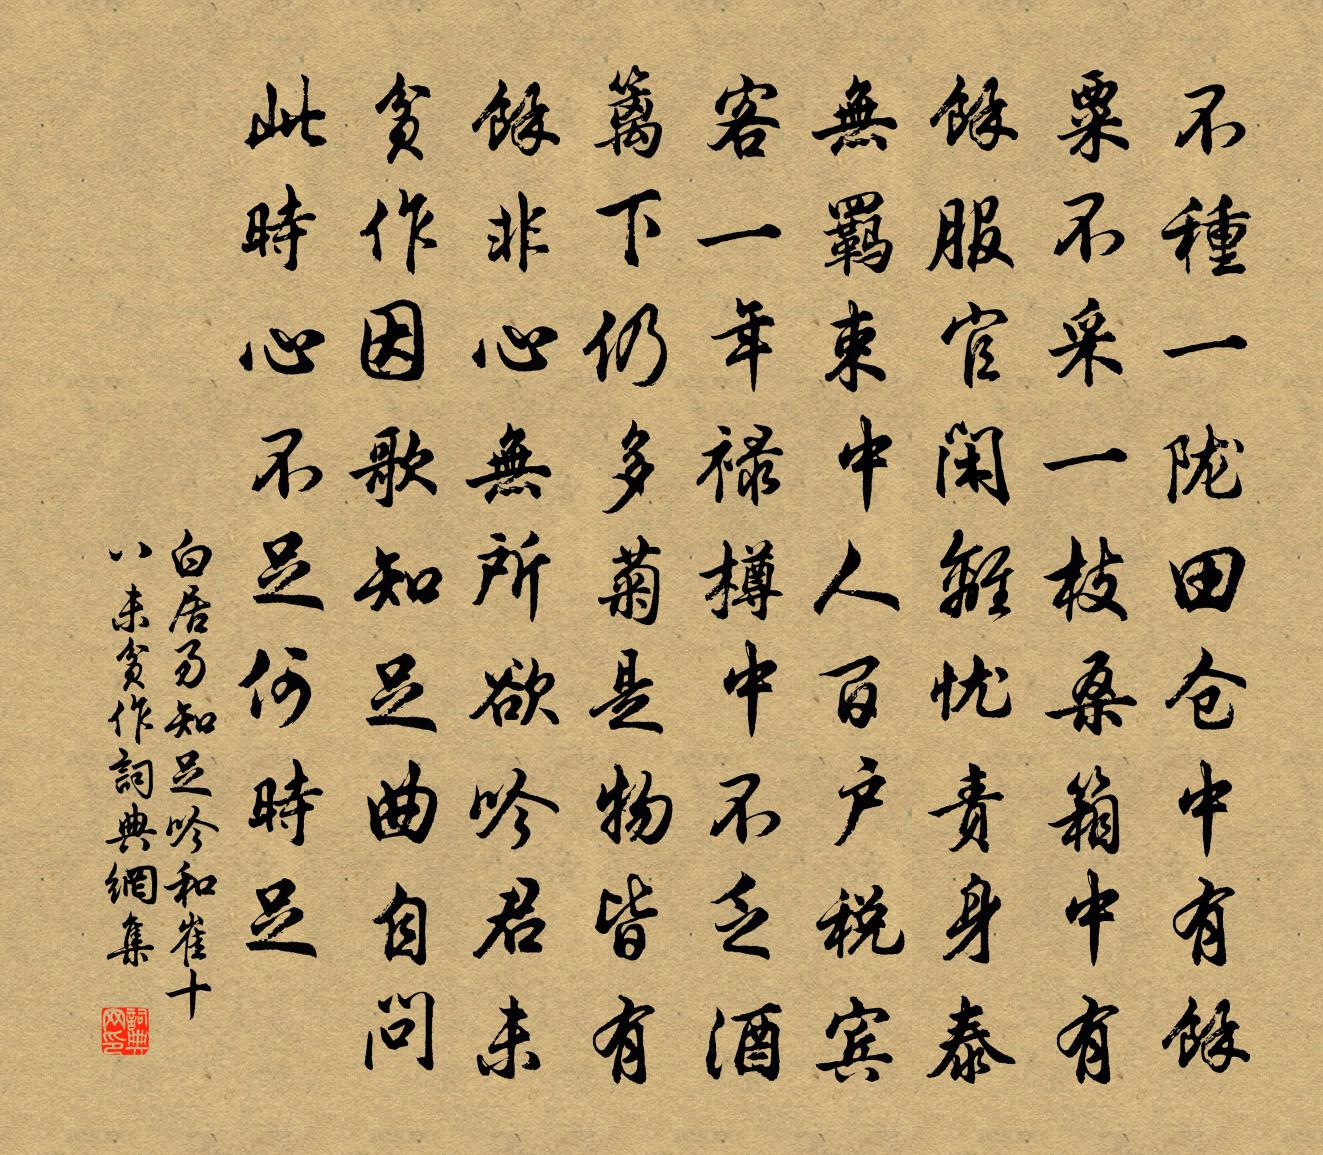 不種一陇田仓中有餘
粟不采一枝桑箱中有
餘服官闲離忧责身泰
無羈束中人百户税宾
客一年禄樽中不乏酒
篱下仍多菊是物皆有
餘非心無所欲吟君未
贫作因歌知足曲自问
此時心不足何時足
白居易知足吟和崔十
八未贫作詞典網集
詞典网印